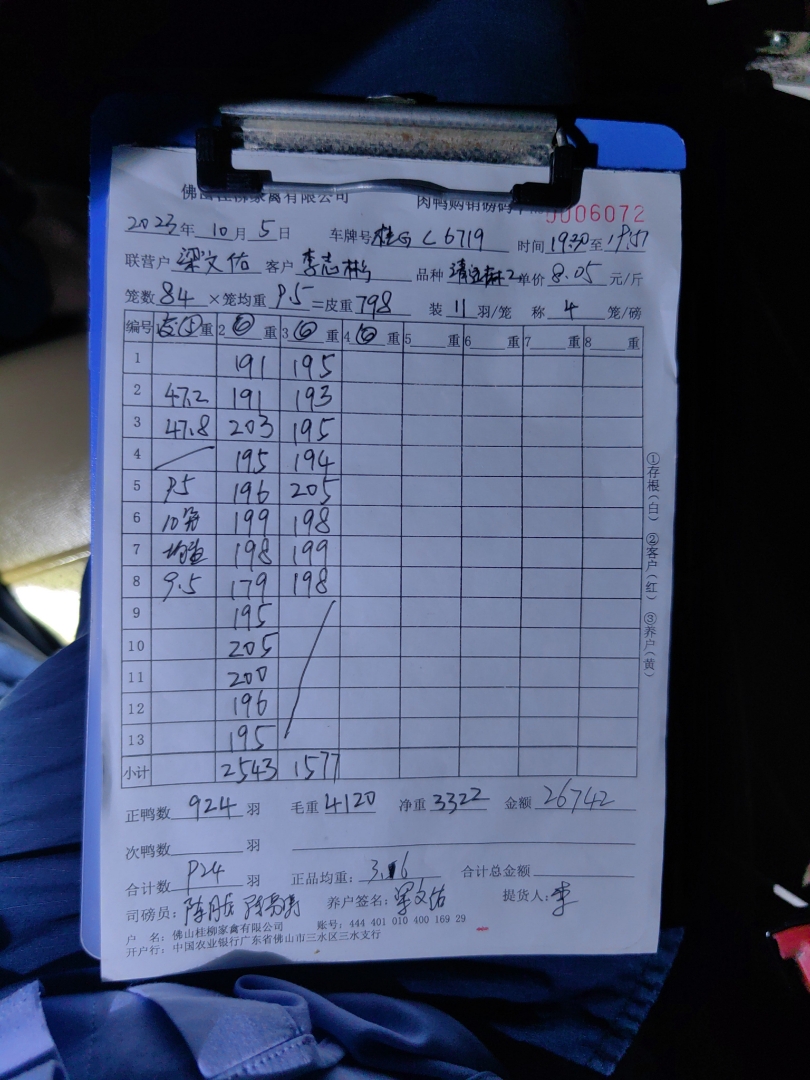 佛山桂柳家禽有限公司 肉鸭购销磅码单 0006072
2023年10月5日 车牌号 C6719 时间19:30至19:57
联营户 梁文佑 客户 李志彬 品种 单价 8.05 元/斤
笼数 84 ×笼均重 9.5 =皮重 798 装 11 羽/笼 称 4 笼/磅
编号 重 2 ⑥ 重 3 ⑥ 重 4 ⑥ 重 5 重 6 重 7 重 8 重
1 191 195
2 47.2 191 193
3 47.8 203 195
4 195 194
5 95 196 205
6 10笼 199 198
7 均重 198 199
8 9.5 179 198
9 195
10 205
11 200
12 196
13 195
小计 2543 1577
正鸭数 924 羽 毛重 4120 净重 3322 金额 26742
次鸭数 羽
合计数 924 羽 正品均重: 3.6 合计总金额
司磅员: 养户签名: 梁文佑 提货人: 李
户 名: 佛山桂柳家禽有限公司 账号: 444 401 010 400 169 29
开户行: 中国农业银行广东省佛山市三水区三水支行
①存根(白) ②客户(红) ③养户(黄)